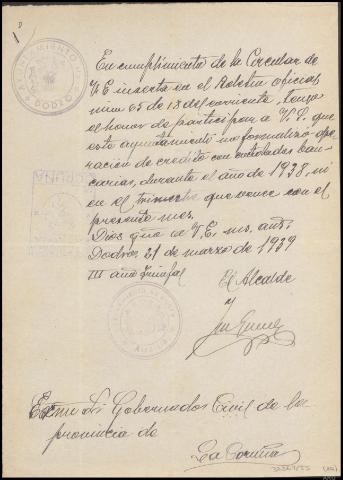 AYUNTAMIENTO DODRO
En cumplimiento de la Circular de
V E inserta en el Boletin oficial
núm 65 de 18 del corriente, tengo
el honor de participar a V.E. que
este ayuntamiento no formalizó ope
ración de credito con entidades ban
carias, durante el año de 1938, ni
en el trimestre que vence con el
presente mes.
Dios que a V.E. ms. ans.
Dodro, 21 de marzo de 1939
III año Triunfal
El Alcalde
Excmo Sr Gobernador Civil de la
provincia de
La Coruña